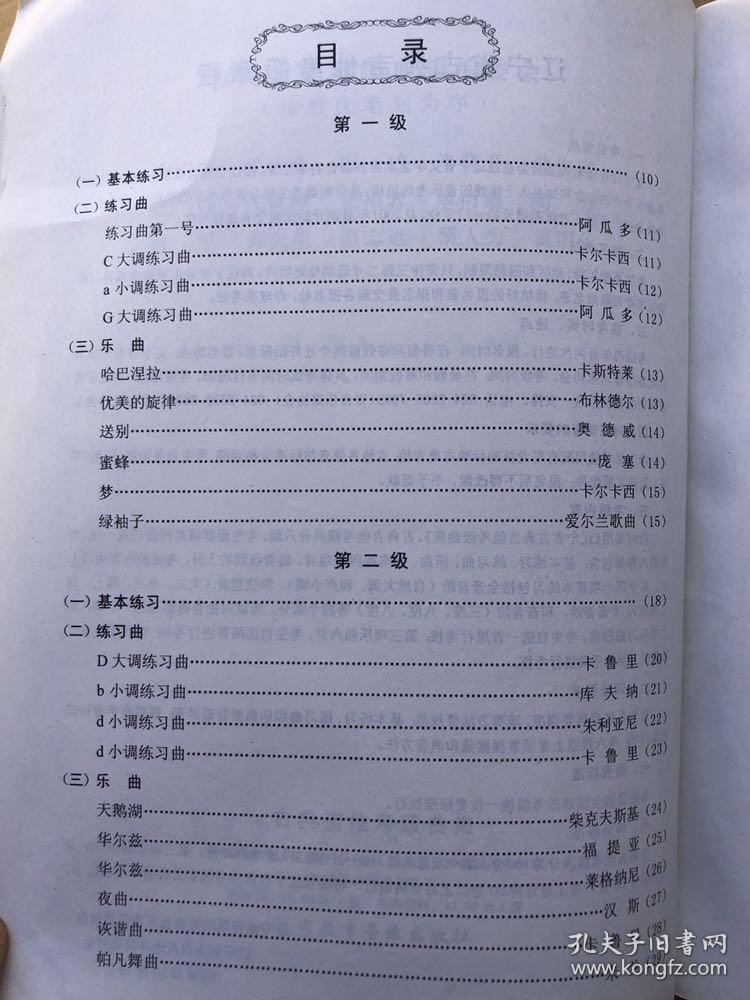 目 录
第一级
(一) 基本练习……(10)
(二) 练习曲
练习曲第一号……阿瓜多(11)
C大调练习曲……卡尔卡西(11)
a小调练习曲……卡尔卡西(12)
G大调练习曲……阿瓜多(12)
(三) 乐 曲
哈巴涅拉……卡斯特莱(13)
优美的旋律……布林德尔(13)
送别……奥德威(14)
蜜蜂……庞塞(14)
梦……卡尔卡西(15)
绿袖子……爱尔兰歌曲(15)
第二级
(一) 基本练习……(18)
(二) 练习曲
D大调练习曲……卡鲁里(20)
b小调练习曲……库夫纳(21)
d小调练习曲……朱利亚尼(22)
d小调练习曲……卡鲁里(23)
(三) 乐 曲
天鹅湖……柴克夫斯基(24)
华尔兹……福提亚(25)
华尔兹……莱格纳尼(26)
夜曲……汉斯(27)
诙谐曲……卡鲁里
帕凡舞曲……(29)
孔夫子旧书网
www.kongfz.com